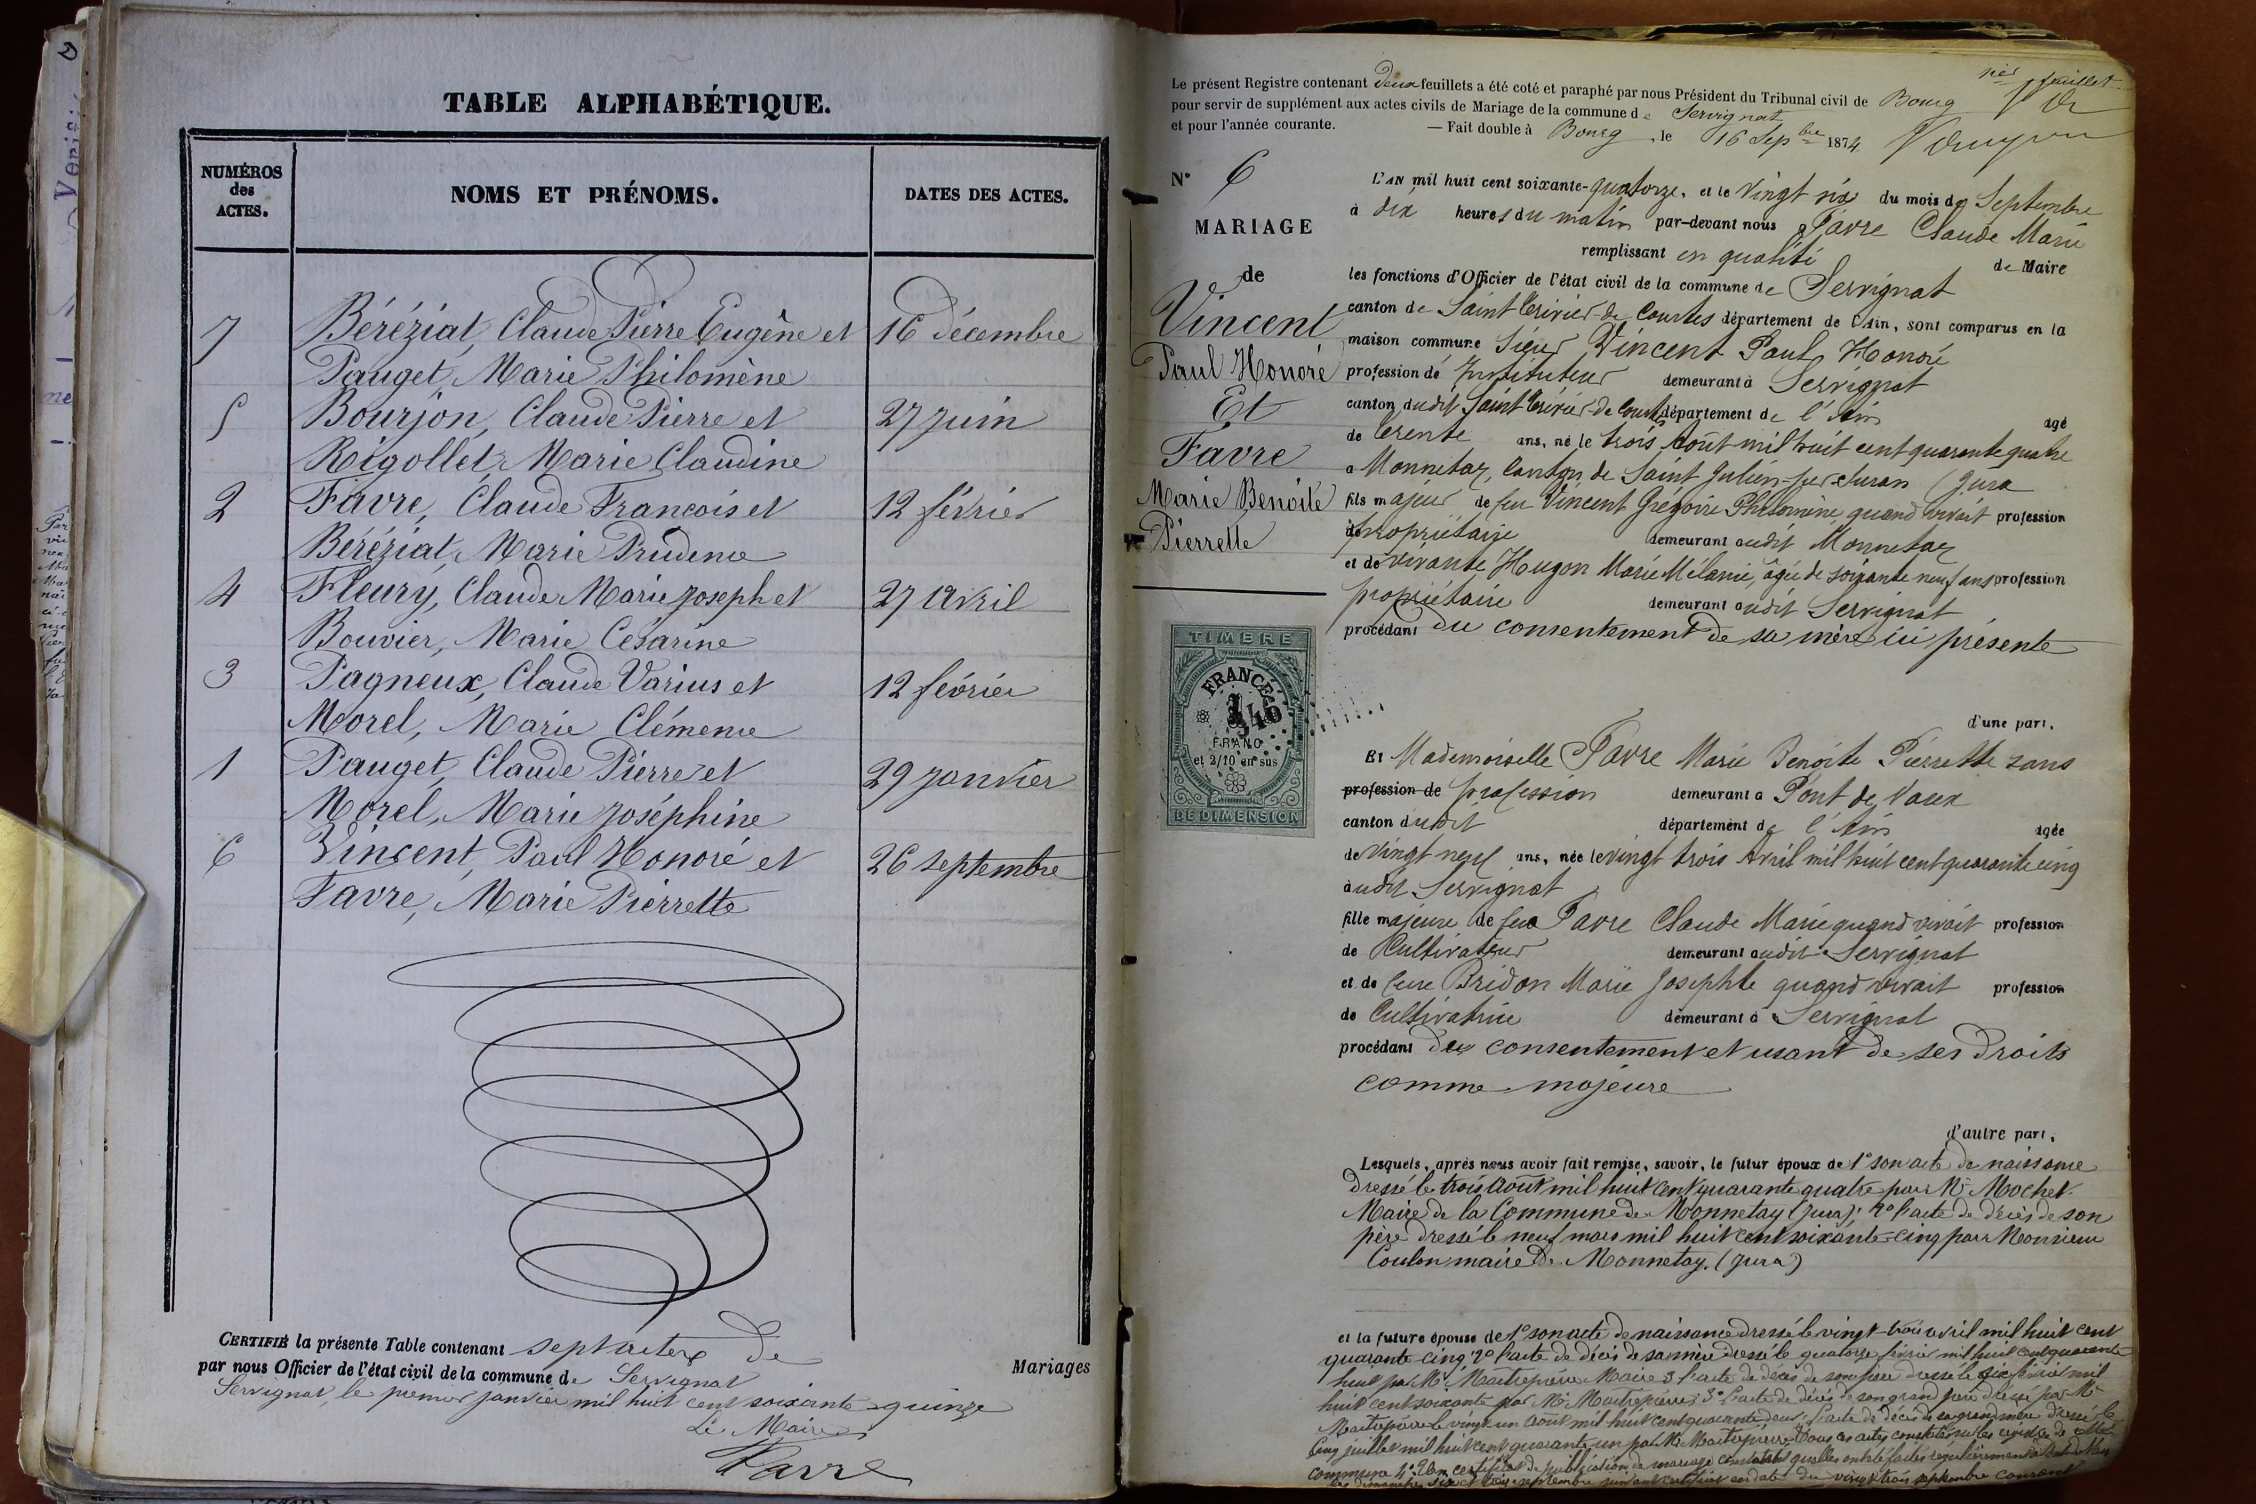 TABLE ALPHABÉTIQUE.
NUMÉROS des ACTES.
NOMS ET PRÉNOMS.
DATES DES ACTES.
7 Béréziat, Claude Pierre Eugène et 16 décembre
Pauget, Marie Philomène
5 Bourjon, Claude Pierre et 27 juin
Rigollet, Marie Claudine
2 Favre, Claude François et 12 février
Béréziat, Marie Prudence
4 Fleury, Claude Marie Joseph et 27 Avril
Bouvier, Marie Césarine
3 Pagneux, Claude Varius et 12 février
Morel, Marie Clémence
1 Pauget, Claude Pierre et 29 janvier
Morel, Marie Joséphine
6 Vincent, Paul Honoré et 26 septembre
Favre, Marie Pierrette
CERTIFIÉ la présente Table contenant sept actes de
par nous Officier de l'état civil de la commune de Servignat
Servignat, le premier janvier mil huit cent soixante-quinze
Le Maire
Favre
Mariages
1er feuillet
Le présent Registre contenant deux feuillets a été coté et paraphé par nous Président du Tribunal civil de Bourg
pour servir de supplément aux actes civils de Mariage de la commune de Servignat
et pour l'année courante. — Fait double à Bourg, le 16 Sepbre 1874
N° 6
MARIAGE
de
Vincent
Paul Honoré
Et
Favre
Marie Benoîte
Pierrette
TIMBRE
FRANCE
1
FRANC
et 2/10 en sus
DE DIMENSION
L'AN mil huit cent soixante-quatorze, et le Vingt six du mois de Septembre
à dix heures du matin par-devant nous Favre Claude Marie
remplissant en qualité de Maire
les fonctions d'Officier de l'état civil de la commune de Servignat
canton de Saint Trivier de Courtes département de l'Ain, sont comparus en la
maison commune Sieur Vincent Paul Honoré
profession de Instituteur demeurant à Servignat
canton dudit Saint Trivier de Courtes département de l'Ain agé
de trente ans, né le trois Août mil huit cent quarante quatre
a Monnetay, Canton de Saint Julien-sur-Suran (Jura
fils majeur de feu Vincent Grégoire Philomène, quand vivait profession
de propriétaire demeurant audit Monnetay
et de vivante Hugon Marie Mélanie, âgée de soixante neuf ans profession
propriétaire demeurant audit Servignat
procédant du consentement de sa mère ici présente
d'une part.
Et Mademoiselle Favre Marie Benoîte Pierrette sans
profession de profession demeurant a Pont de Vaux
canton dudit département de l'Ain agée
de vingt neuf ans, née le vingt trois Avril mil huit cent quarante cinq
audit Servignat
fille majeure de feu Favre Claude Marie quand vivait profession
de Cultivateur demeurant audit Servignat
et de feue Bridon Marie Josephte quand vivait profession
de Cultivatrice demeurant à Servignat
procédant du consentement et usant de ses droits
comme majeure
d'autre part.
Lesquels, après nous avoir fait remise, savoir, le futur époux de 1° son acte de naissance
dressé le trois août mil huit cent quarante quatre par Mr Mochet
Maire de la Commune de Monnetay (Jura); 2° l'acte de décès de son
père dressé le neuf mars mil huit cent soixante-cinq par Monsieur
Coulon maire de Monnetay. (Jura)
et la future épouse de 1° son acte de naissance dressé le vingt-trois avril mil huit cent
quarante-cinq 2° l'acte de décès de sa mère dressé le quatorze février mil huit cent quarante
huit par Mr Maitrepierre Maire 3 l'acte de décès de son père dressé le six février mil
huit cent soixante par Mr Maitrepierre; 3° l'acte de décès de son grand père dressé par Mr
Maitrepierre le vingt un août mil huit cent quarante deux; l'acte de décès de sa grand'mère dressé le
cinq juillet mil huit cent quarante un par Mr Maitrepierre. Tous ces actes constatés sur les registres de cette
commune 4° Un certificat de publication de mariage constatant qu'elles ont été faites régulièrement à Pont de Vaux
les dimanches six et treize septembre suivant certificat en date du vingt trois septembre courant